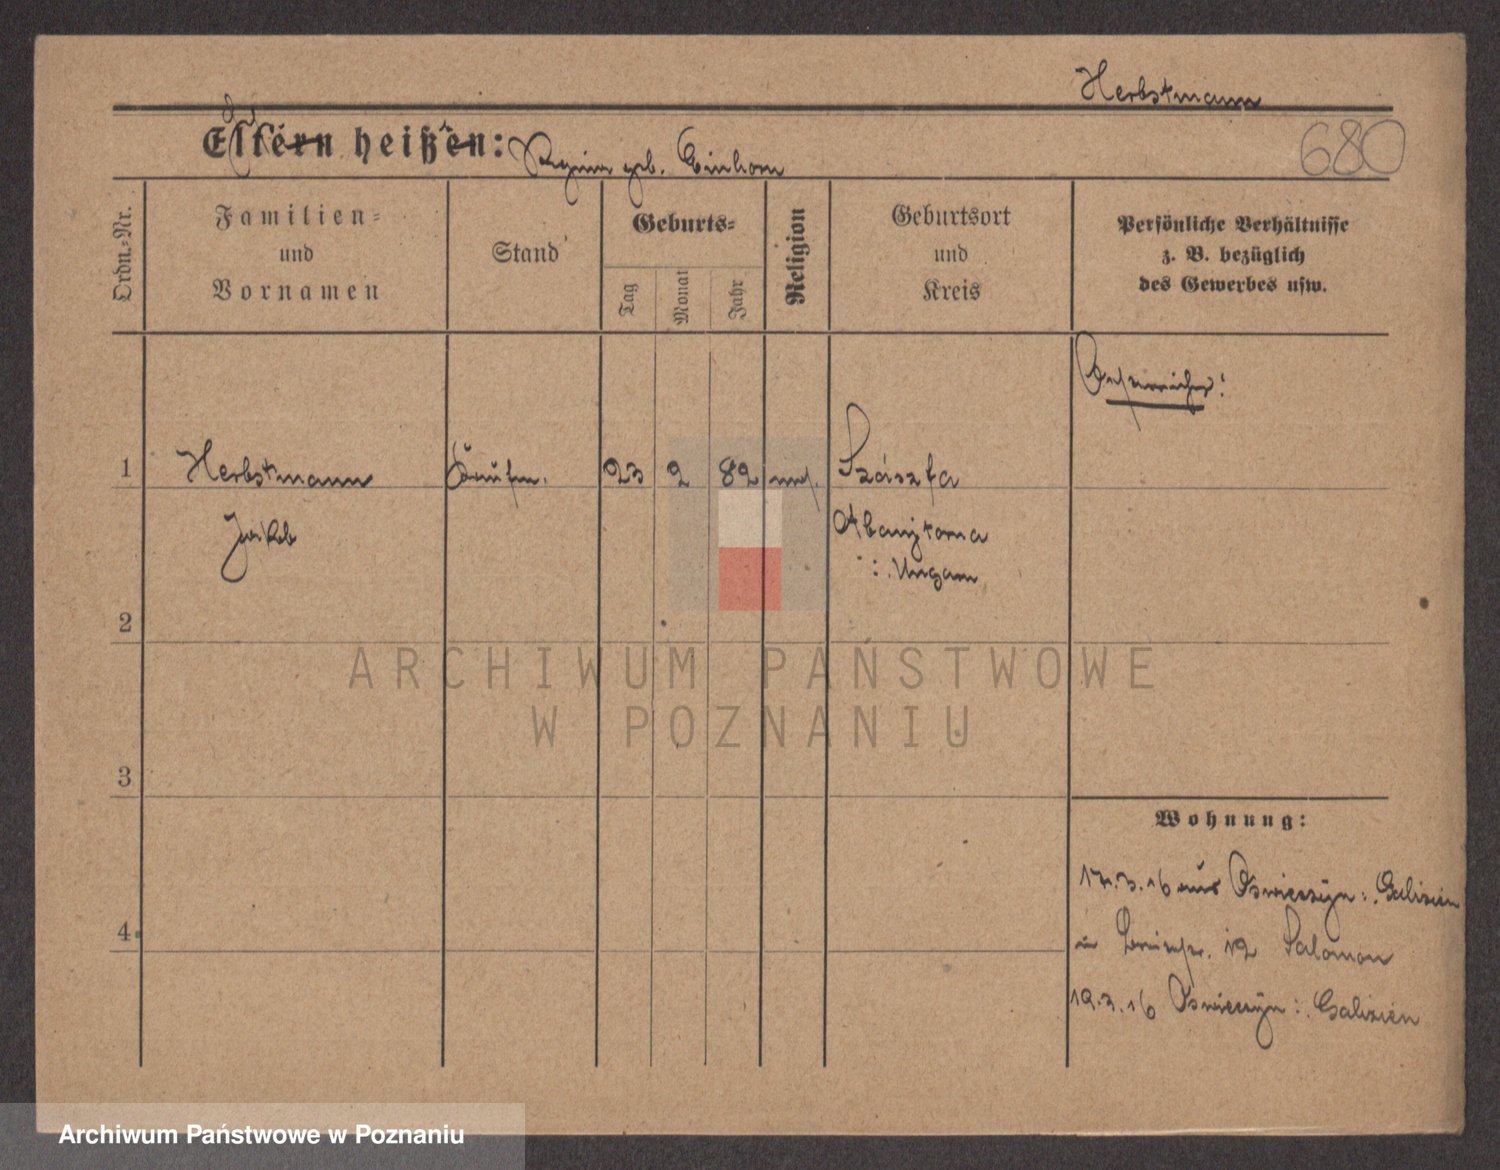 Herbstmann
680
Eltern heißen: Regina geb. Einhorn
Ordn.-Nr.
Familien-
und
Vornamen
Stand
Geburts-
Tag
Monat
Jahr
Religion
Geburtsort
und
Kreis
Persönliche Verhältnisse
z. B. bezüglich
des Gewerbes usw.
Österreicher!
1
Herbstmann
Kaufm.
23
2
82
mos.
Szászfa
Jakob
Abaujtorna
:. Ungarn
2
ARCHIWUM PAŃSTWOWE
W POZNANIU
3
Wohnung:
17.3.16 aus Oswieczyn :. Galizien
4
12 Salomon
19.3.16 Oswieczyn :. Galizien
Archiwum Państwowe w Poznaniu